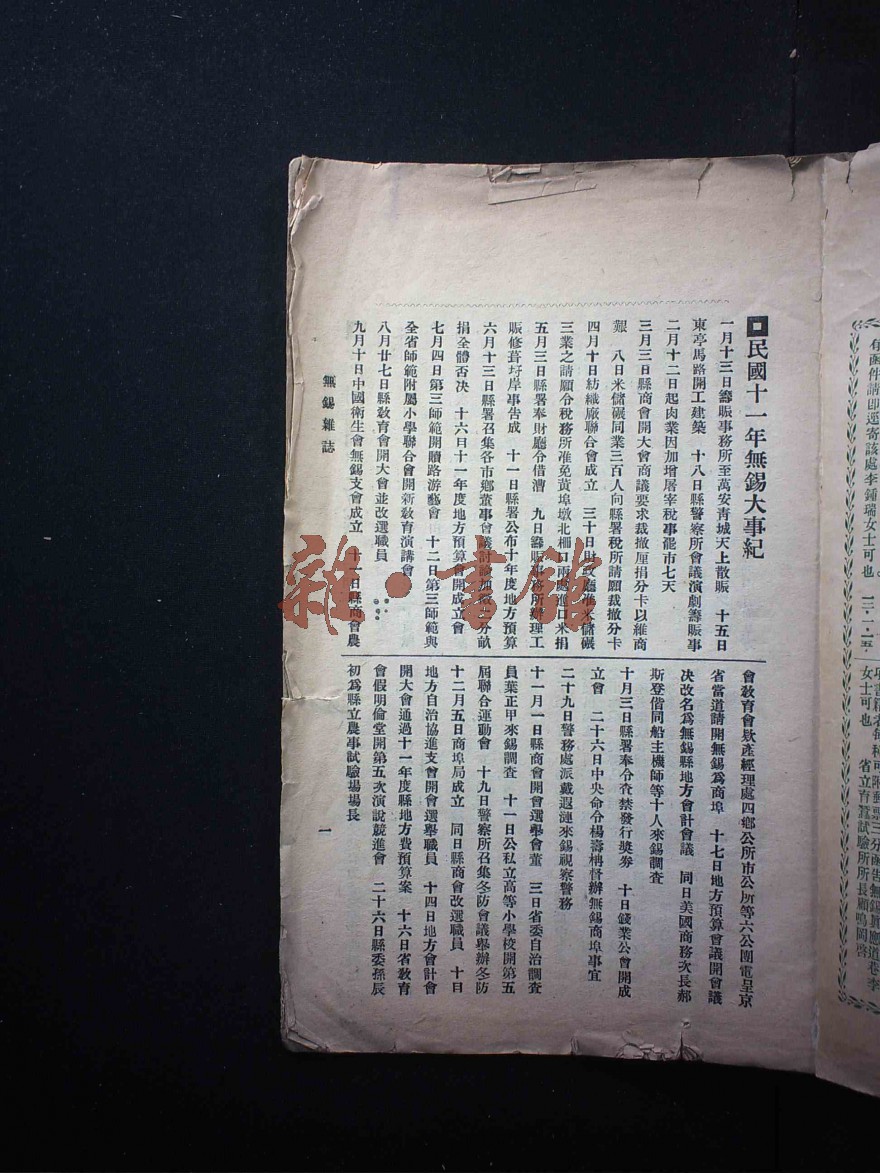 民國十一年無錫大事紀
一月十三日籌賑事務所至萬安靑城天上散賑　十五日
東亭馬路開工建築　十八日縣警察所會議演劇籌賑事
二月十二日起肉業因加增屠宰稅事罷市七天
三月三日縣商會開大會商議要求裁撤厘捐分卡以維商
艱　八日米儲礱同業三百人向縣署稅所請願裁撤分卡
四月十日紡織廠聯合會成立　三十日財政廳准米儲礱
三業之請願令稅務所准免黃埠墩北柵口兩處進口米捐
五月三日縣署奉財廳令借漕　九日籌賑事務所辦理工
賑修葺圩岸事吿成　十一日縣署公布十年度地方預算
六月十三日縣署召集各市鄉董事會議討論加徵二分畝
捐全體否決　十六日十一年度地方預算會開成立會
七月四日第三師範開贖路游藝會　十二日第三師範與
全省師範附屬小學聯合會開新敎育演講會
八月廿七日縣敎育會開大會並改選職員
九月十日中國衛生會無錫支會成立　十一日縣商會農
會敎育會欵產經理處四鄉公所市公所等六公團電呈京
省當道請開無錫爲商埠　十七日地方預算會議開會議
決改名爲無錫縣地方會計會議　同日美國商務次長郝
斯登偕同船主機師等十人來錫調查
十月三日縣署奉令查禁發行獎券　十日錢業公會開成
立會　二十六日中央命令楊壽枬督辦無錫商埠事宜
二十九日警務處派戴遐漣來錫視察警務
十一月一日縣商會開會選舉會董　三日省委自治調查
員葉正甲來錫調查　十一日公私立高等小學校開第五
屆聯合運動會　十九日警察所召集冬防會議舉辦冬防
十二月五日商埠局成立　同日縣商會改選職員　十日
地方自治協進支會開會選舉職員　十四日地方會計會
開大會通過十一年度縣地方費預算案　十六日省敎育
會假明倫堂開第五次演說競進會　二十六日縣委孫辰
初爲縣立農事試驗場場長
無錫雜誌
一
雜·書館
有函件請即逕寄該處李鍾瑞女士可也。
女士可也　省立育蠶試驗所所長顧鳴岡啓